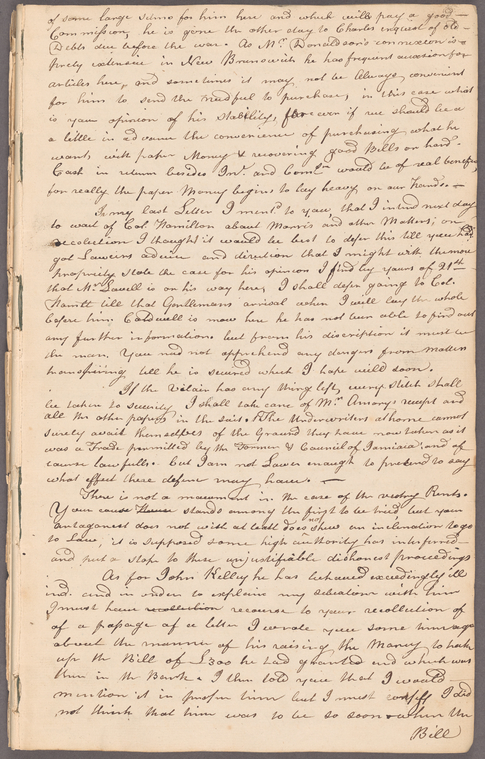 of some large Sums for him here and which will pay a good
Commission, he is gone the other day to Charles in quest of old
Debts due before the war. As Mr. Donaldson's connexion is
prety extensive in New Brunswick he has frequent occasion for
articles here, and sometimes it may not be always convenient
for him to send the needful to purchase, in this case what
is your opinion of his stability, for ever if we should be a
a little in advance the convenience of purchasing what he
wants with paper Money & recovering good Bills or hard
Cash in return besides Int. and Comn. would be of real benefit
for really the paper Money begins to lay heavy on our hands. —
In my last Letter I mentd. to you that I intend next day
to wait of Col. Hamilton about Morris and other Matters; on
recolection I thought it would be best to defer this till you had
got Lawiers advice and direction that I might with the more
propriety state the case for his opinion I find by yours of 21st
that Mr. Lavell is on his way here, I shall defer going to Col.
Hamilt till that Gentlemans arrival when I will lay the whole
before him Caldwell is now here he has not been able to find out
any further informations but from his discription it must be
the man. You need not apprehend any danger from matters
transpiring till he is secured which I hope will soon.
If the Vilain has any thing left, every Stitch shall
be taken to security, I shall take care of Mr. Amorys receipt and
all the other papers in the suit. The Underwriters at home cannot
surely avail themselves of the Ground they have now taken as it
was a Trade permitted by the Governor & Council of Jamiaca, and of
cause lawfull. but I am not Lawer enough to pretend to say
what effect these defence may have. —
There is not a movement in the case of the vestry Rents.
Your cause stands among the first to be tried but your
antagonest does not wish at least does not shew an inclination to go
to Law, it is supposed some high authority has interfered
and put a stope to these unjustifiable dishonest proceedings
As for John Kelley he has behaved exceedingly ill
ind. and in order to explain my situation with him
I must have recolection recourse to your recollection of
of a passage of a letter I wrote you some time ago
about the manner of his raising the Money to take
up the Bill of £300 he had granted and which was
then in the Bank. I then told you that I would
mention it in prosn him but I must confess I did
not think that him was to be so soon when the
Bill